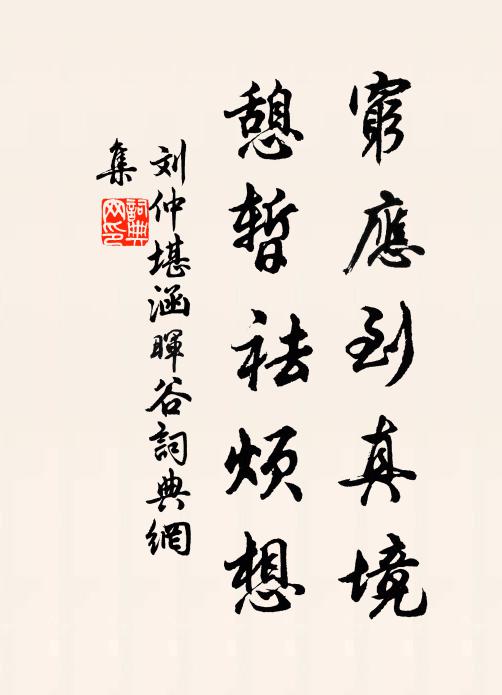 窮應到真境
憩暫祛煩想
刘仲堪涵暉谷詞典網
集
詞典網印